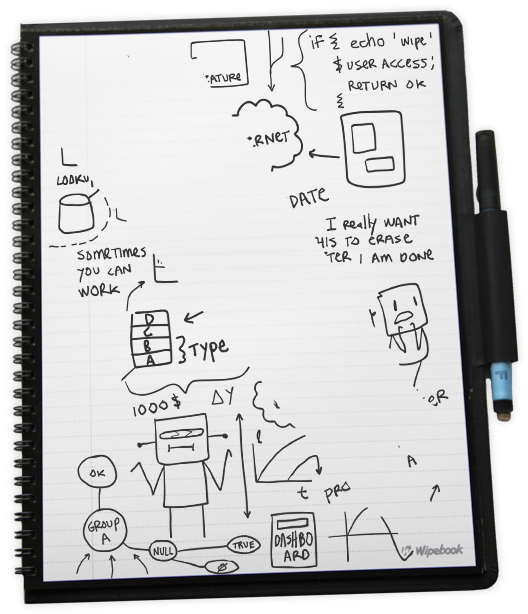 if { echo 'wipe'
$ USER ACCESS;
RETURN OK
{
ATURE
.RNET
DATE
LOOKU
I REALLY WANT
HIS TO ERASE
TER I AM DONE
SOMETIMES
YOU CAN
WORK
D
C
B
A
} TYPE
1000$
ΔY
l
t
PRO
OR
A
OK
GROUP
A
NULL
TRUE
Ø
DASHBO
ARD
Wipebook